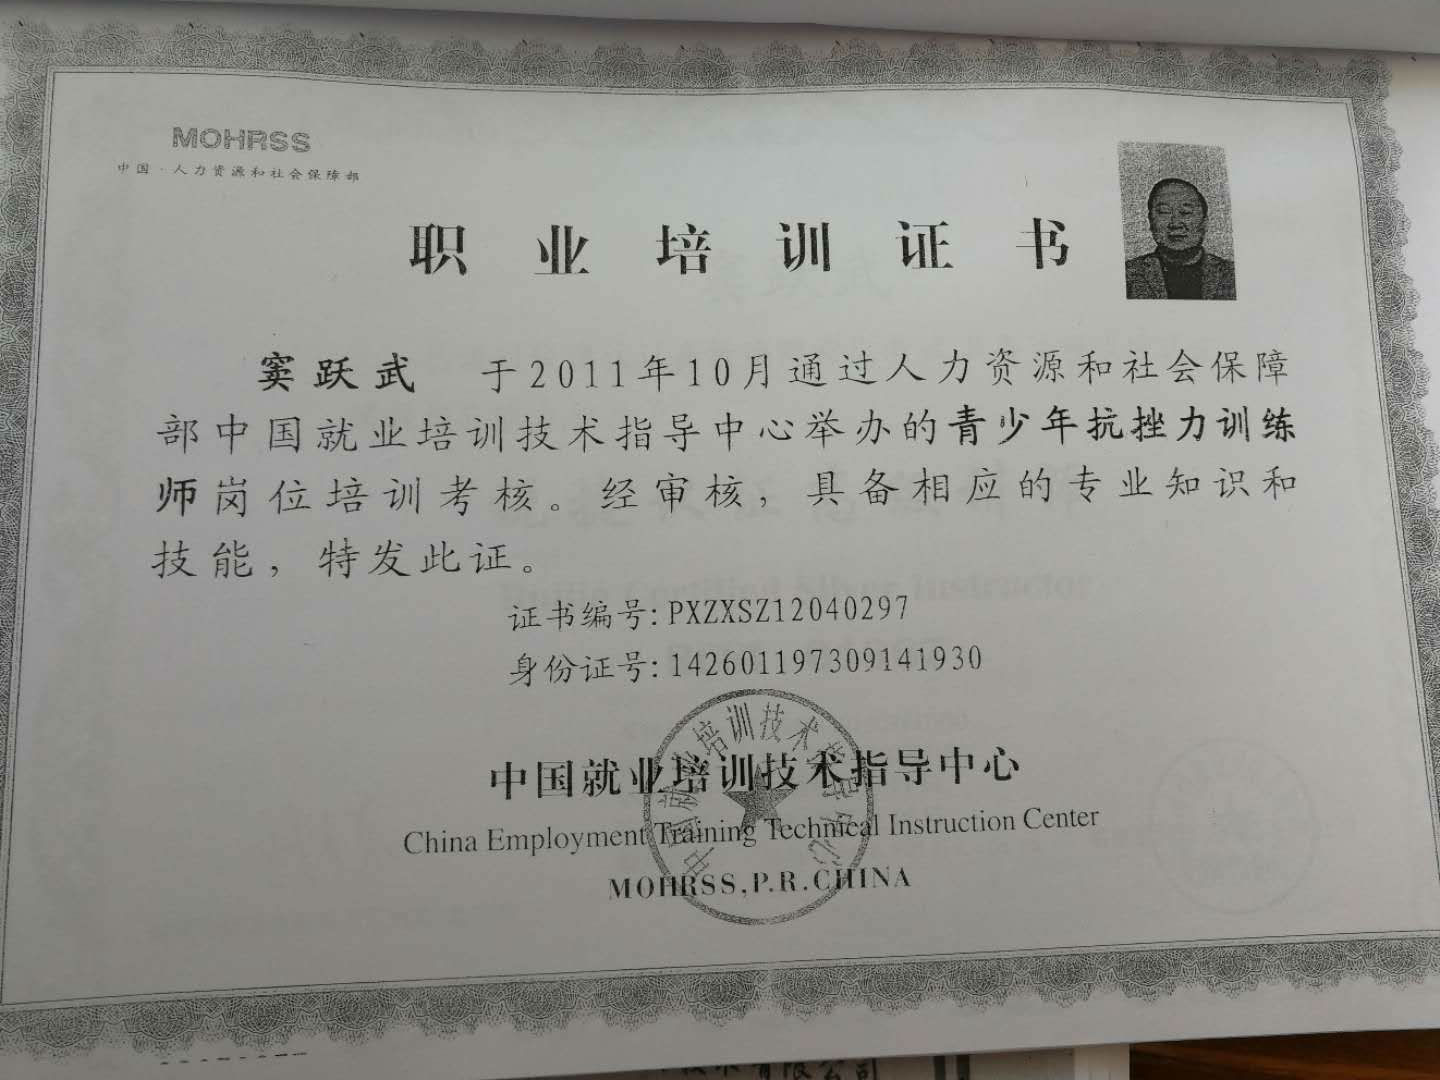 MOHRSS
中国·人力资源和社会保障部
职业培训证书
窦跃武 于2011年10月通过人力资源和社会保障
部中国就业培训技术指导中心举办的青少年抗挫力训练
师岗位培训考核。经审核，具备相应的专业知识和
技能，特发此证。
证书编号: PXZXSZ12040297
身份证号: 142601197309141930
中国就业培训技术指导中心
中国就业培训技术指导中心
China Employment Training Technical Instruction Center
MOHRSS,P.R.CHINA
技术有限公司